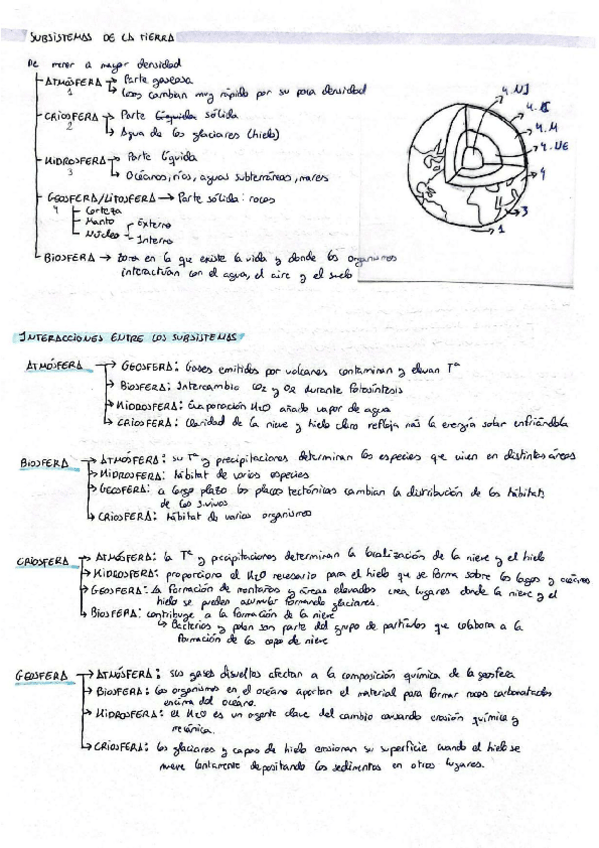 SUBSISTEMAS DE LA TIERRA
De menor a mayor densidad
ATMÓSFERA → Parte gaseosa
1 → Gases cambian muy rápido por su poca densidad
CRIOSFERA → Parte líquida sólida
2 → Agua de los glaciares (hielo)
HIDROSFERA → Parte líquida
3 → Océanos, ríos, aguas subterráneas, mares
GEOSFERA/LITOSFERA → Parte sólida: rocas
4 Corteza
Manto
Núcleo Externo
Interno
BIOSFERA → Zona en la que existe la vida y donde los organismos
interactúan con el agua, el aire y el suelo
4.NI
4.M
4.NE
4
3
1
INTERACCIONES ENTRE LOS SUBSISTEMAS
ATMÓSFERA → GEOSFERA: Gases emitidos por volcanes contaminan y elevan Tª
→ BIOSFERA: Intercambio CO2 y O2 durante fotosíntesis
→ HIDROSFERA: Evaporación H2O añade vapor de agua
→ CRIOSFERA: claridad de la nieve y hielo claro refleja más la energía solar enfriándola
BIOSFERA → ATMÓSFERA: su Tª y precipitaciones determinan las especies que viven en distintas áreas
→ HIDROSFERA: hábitat de varias especies
→ GEOSFERA: a largo plazo las placas tectónicas cambian la distribución de los hábitats
de los s.vivos
→ CRIOSFERA: hábitat de varios organismos
CRIOSFERA → ATMÓSFERA: la Tª y pcipitaciones determinan la localización de la nieve y el hielo
→ HIDROSFERA: proporciona el H2O necesario para el hielo que se forma sobre los lagos y océanos
→ GEOSFERA: la formación de montañas y áreas elevadas crea lugares donde la nieve y el
hielo se pueden acumular formando glaciares.
→ BIOSFERA: contribuye a la formación de la nieve
↳ Bacterias y polen son parte del grupo de partículas que colabora a la
formación de los copos de nieve
GEOSFERA → ATMÓSFERA: sus gases disueltos afectan a la composición química de la geosfera
→ BIOSFERA: los organismos en el océano aportan el material para formar rocas carbonatadas
encima del océano.
→ HIDROSFERA: el H2O es un agente clave del cambio causando erosión química y
mecánica.
→ CRIOSFERA: los glaciares y capas de hielo erosionan su superficie cuando el hielo se
mueve lentamente depositando los sedimentos en otros lugares.